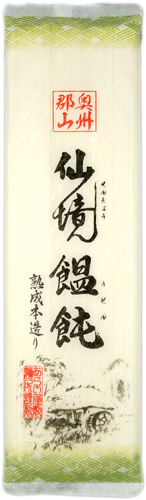 奥州
郡山
仙境饂飩
せんきょう
うどん
熟成本造り